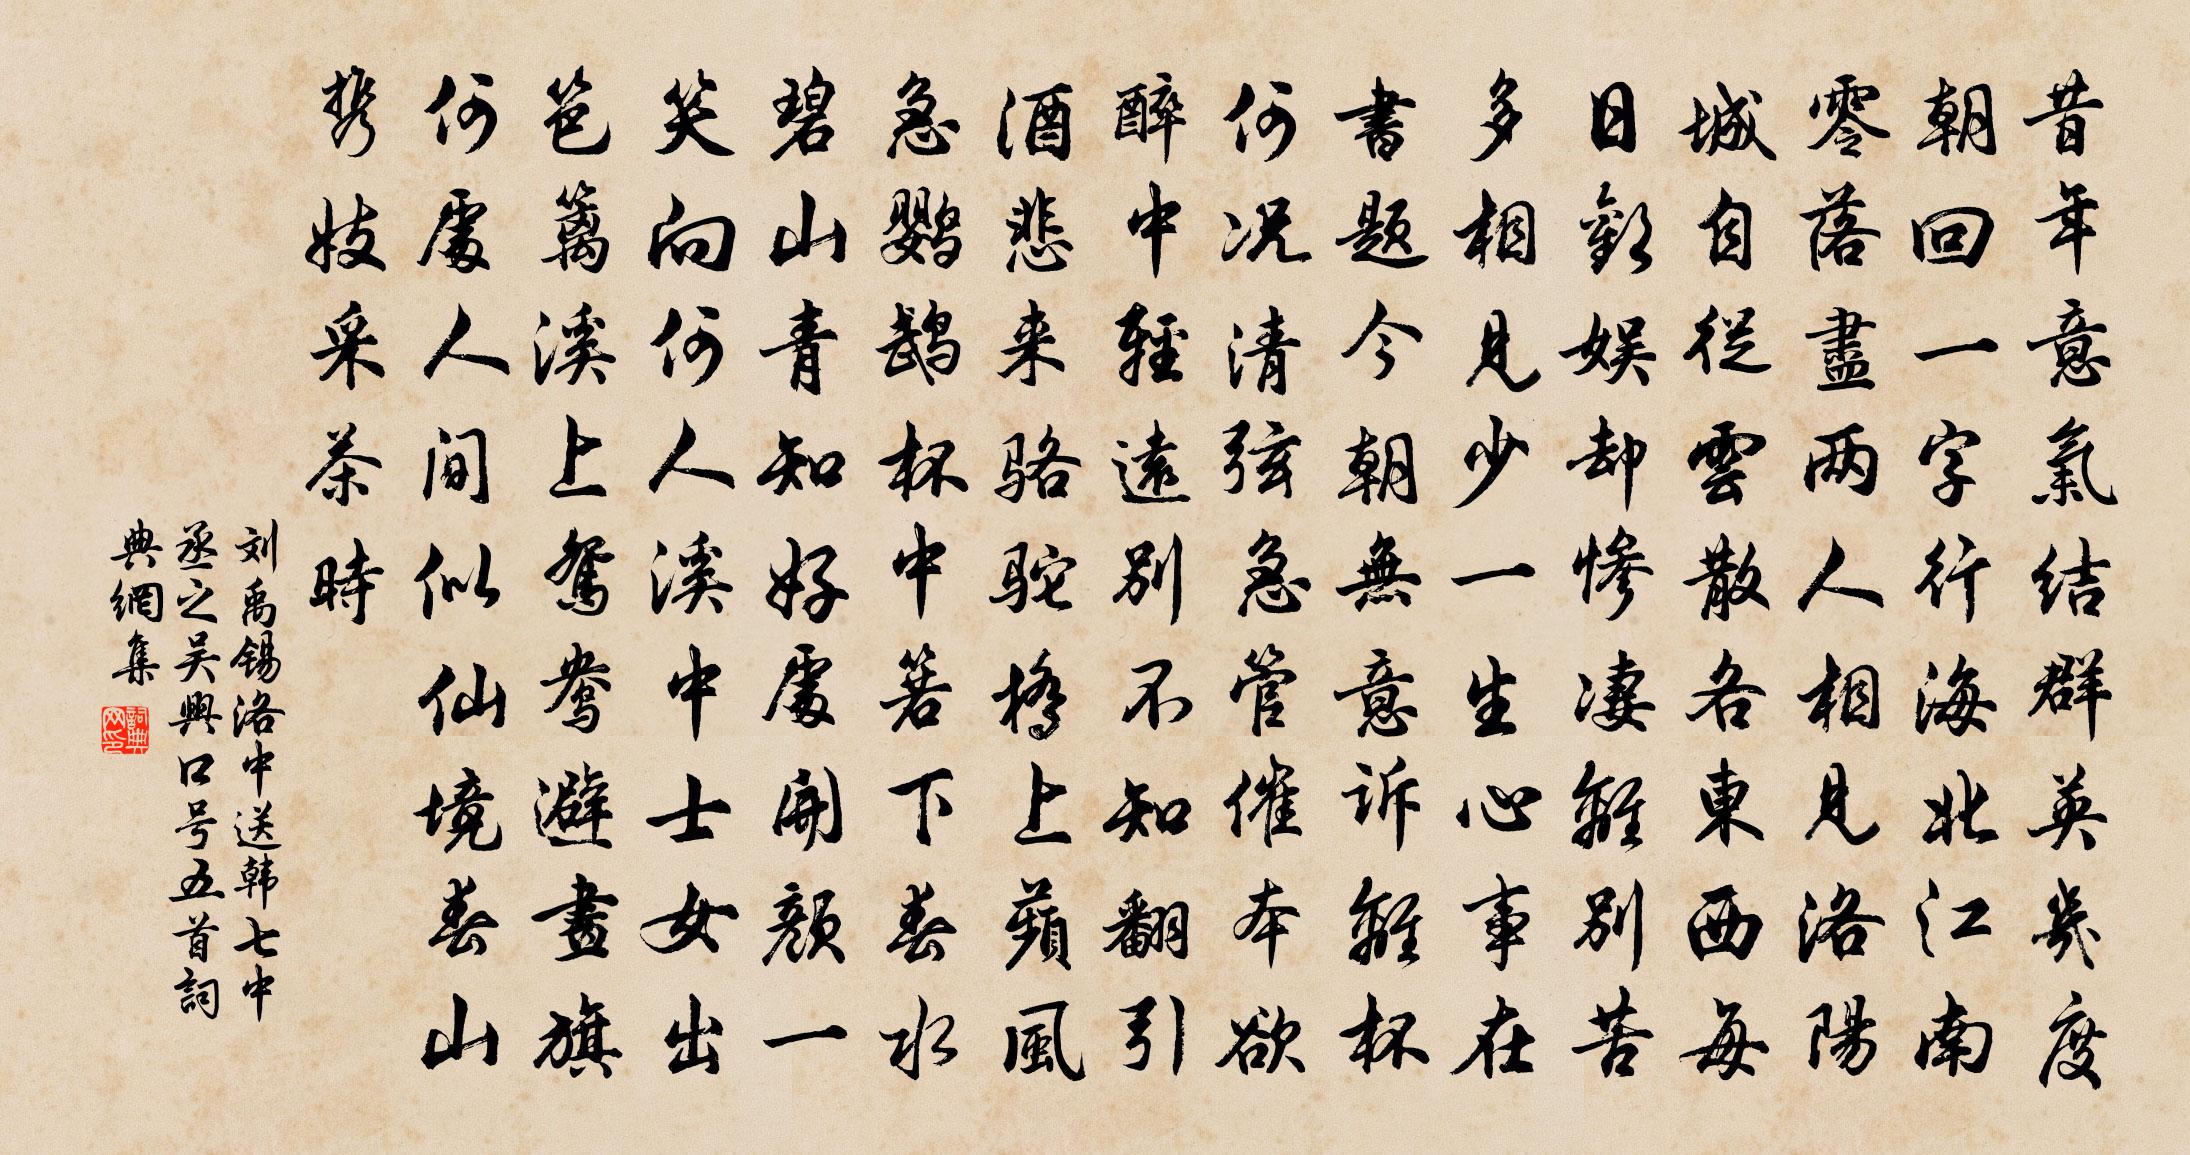 昔年意氣结群英幾度
朝回一字行海北江南
零落盡两人相見洛陽
城自從雲散各東西每
日歡娱却惨凄離别苦
多相見少一生心事在
書题今朝無意訴離杯
何况清弦急管催本欲
醉中輕遠别不知翻引
酒悲来骆驼橋上蘋風
急鹦鹉杯中箬下春水
碧山青知好處開颜一
笑向何人溪中士女出
笆篱溪上鸳鸯避畫旗
何處人間似仙境春山
携妓采茶時
刘禹锡洛中送韩七中
丞之吴興口号五首詞
典網集
詞典
网印